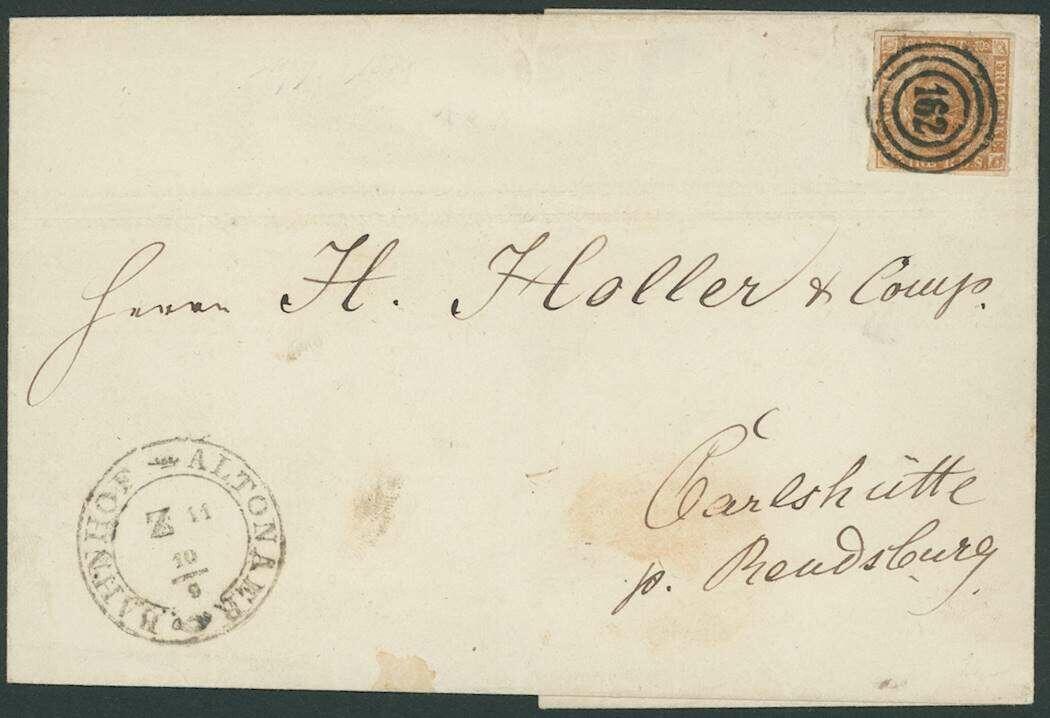 162
FRIMÆRKE
Herrn H. Holler & Comp.
Carlshütte
p. Rendsburg
ALTONAER BAHNHOF
Z 11
10